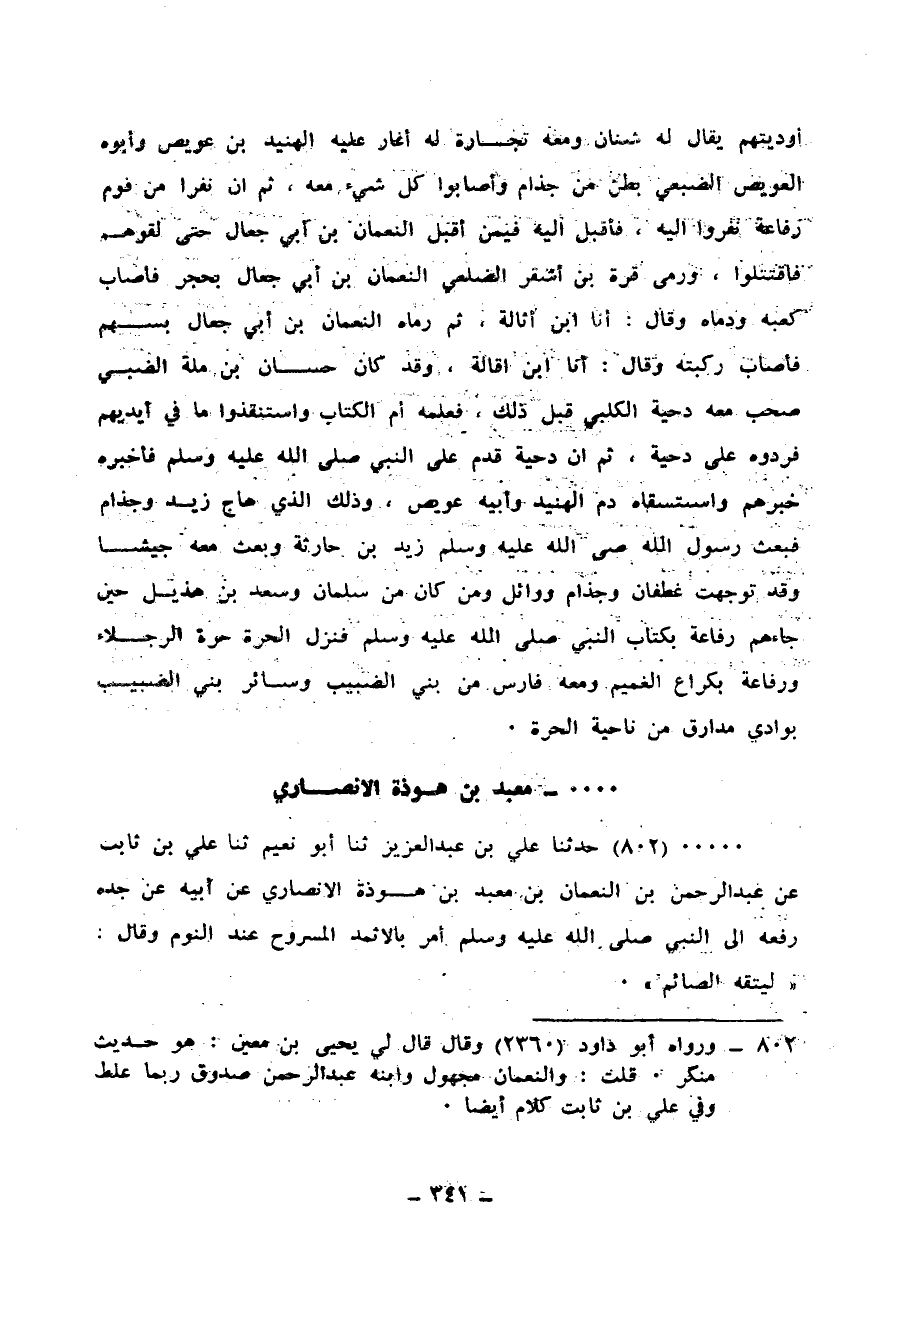 أوديتهم يقال له شنان ومعه تجارة له أغار عليه الهنيد بن عويص وأبوه
العويص الضبعي بطن من جذام وأصابوا كل شيء معه ، ثم ان نفرا من قوم
رفاعة نفروا اليه ، فأقبل اليه فيمن أقبل النعمان بن أبي جعال حتى لقوهم
فاقتتلوا ، ورمى قرة بن أشقر الضلعي النعمان بن أبي جعال بحجر فأصاب
كعبه ودماه وقال : أنا ابن أثالة ، ثم رماه النعمان بن أبي جعال بسهم
فأصاب ركبته وقال : أنا ابن اقالة ، وقد كان حسان بن ملة الضبي
صحب معه دحية الكلبي قبل ذلك ، فعلمه أم الكتاب واستنقذوا ما في أيديهم
فردوه على دحية ، ثم ان دحية قدم على النبي صلى الله عليه وسلم فأخبره
خبرهم واستسقاه دم الهنيد وأبيه عويص ، وذلك الذي هاج زيد وجذام
فبعث رسول الله صى الله عليه وسلم زيد بن حارثة وبعث معه جيشا
وقد توجهت غطفان وجذام ووائل ومن كان من سلمان وسعد بن هذيل حين
جاءهم رفاعة بكتاب النبي صلى الله عليه وسلم فنزل الحرة حرة الرجلاء
ورفاعة بكراع الغميم ومعه فارس من بني الضبيب وسائر بني الضبيب
بوادي مدارق من ناحية الحرة ٠
٠٠٠٠ ـ معبد بن هوذة الانصاري
٠٠٠٠٠ (٨٠٢) حدثنا علي بن عبدالعزيز ثنا أبو نعيم ثنا علي بن ثابت
عن عبدالرحمن بن النعمان بن معبد بن هوذة الانصاري عن أبيه عن جده
رفعه الى النبي صلى الله عليه وسلم أمر بالاثمد المسروح عند النوم وقال :
« ليتقه الصائم » ٠
٨٠٢ ـ ورواه أبو داود (٢٣٦٠) وقال قال لي يحيى بن معين : هو حديث
منكر ٠ قلت : والنعمان مجهول وابنه عبدالرحمن صدوق ربما غلط
وفي علي بن ثابت كلام أيضا ٠
ـ ٣٤١ ـ